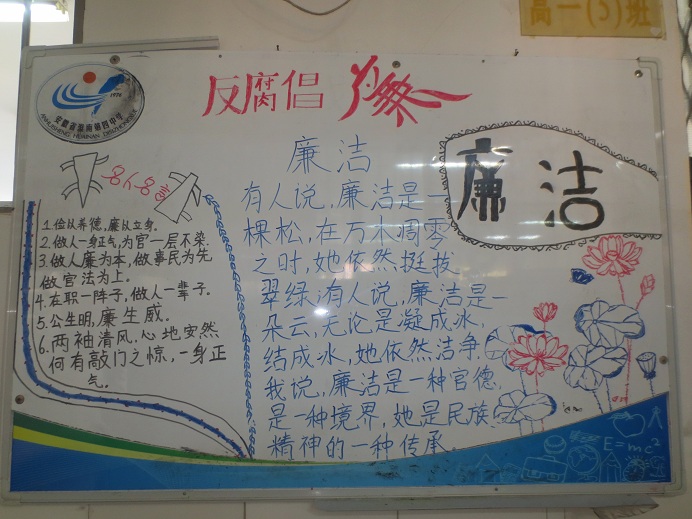 高一(5)班
反腐倡廉
安徽省淮南第四中学
1970
名人名言
1.俭以养德,廉以立身。
2.做人一身正气,为官一层不染.
3.做人廉为本,做事民为先
做官法为上。
4.在职一阵子,做人一辈子.
5.公生明,廉生威。
6.两袖清风,心地安然
何有敲门之惊,一身正
气。
廉洁
有人说,廉洁是一
棵松,在万木凋零
之时,她依然挺拔
翠绿,有人说,廉洁是一
朵云,无论是凝成冰,
结成冰,她依然洁净.
我说,廉洁是一种官德,
是一种境界,她是民族
精神的一种传承.
廉洁
E=mc²